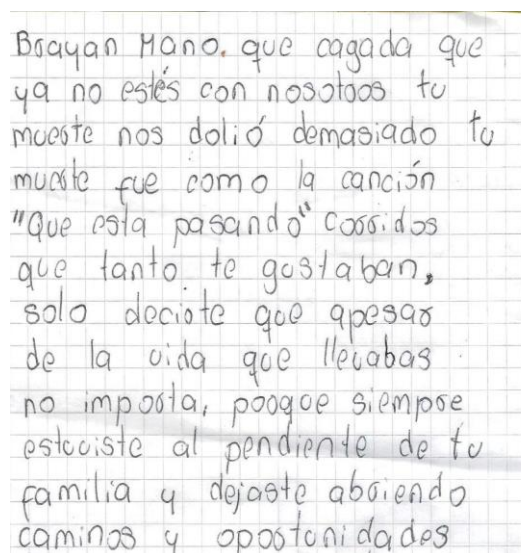 Brayan Mano. que cagada que
ya no estés con nosotros tu
muerte nos dolió demasiado tu
muerte fue como la canción
"Que esta pasando" corridos
que tanto te gustaban.
solo decirte que apesar
de la vida que llevabas
no importa, porque siempre
estuviste al pendiente de tu
familia y dejaste abriendo
caminos y oportunidades